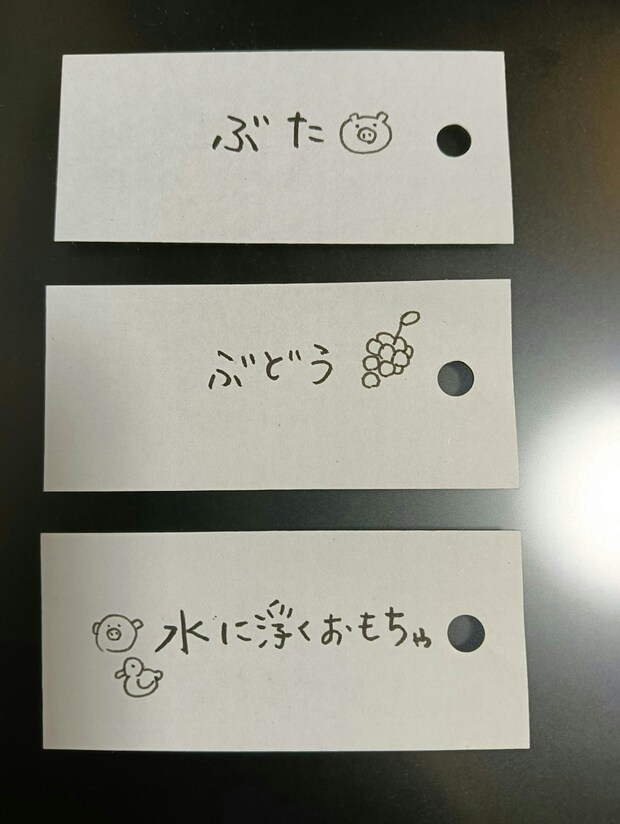 ぶた
ぶどう
水に浮くおもちゃ